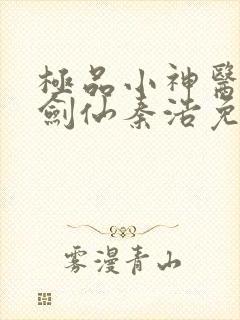 極品小神醫
劍仙秦浩免
雾漫青山